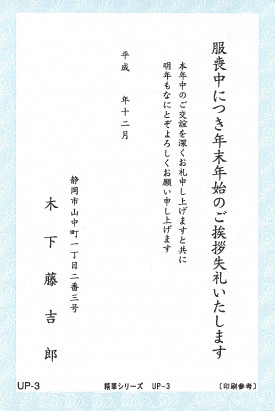 服喪中につき年末年始のご挨拶失礼いたします
本年中のご交誼を深くお礼申し上げますと共に
明年もなにとぞよろしくお願い申し上げます
平成　年十二月
静岡市山中町一丁目二番三号
木下藤吉郎
UP-3
精華シリーズ UP-3
〔印刷参考〕